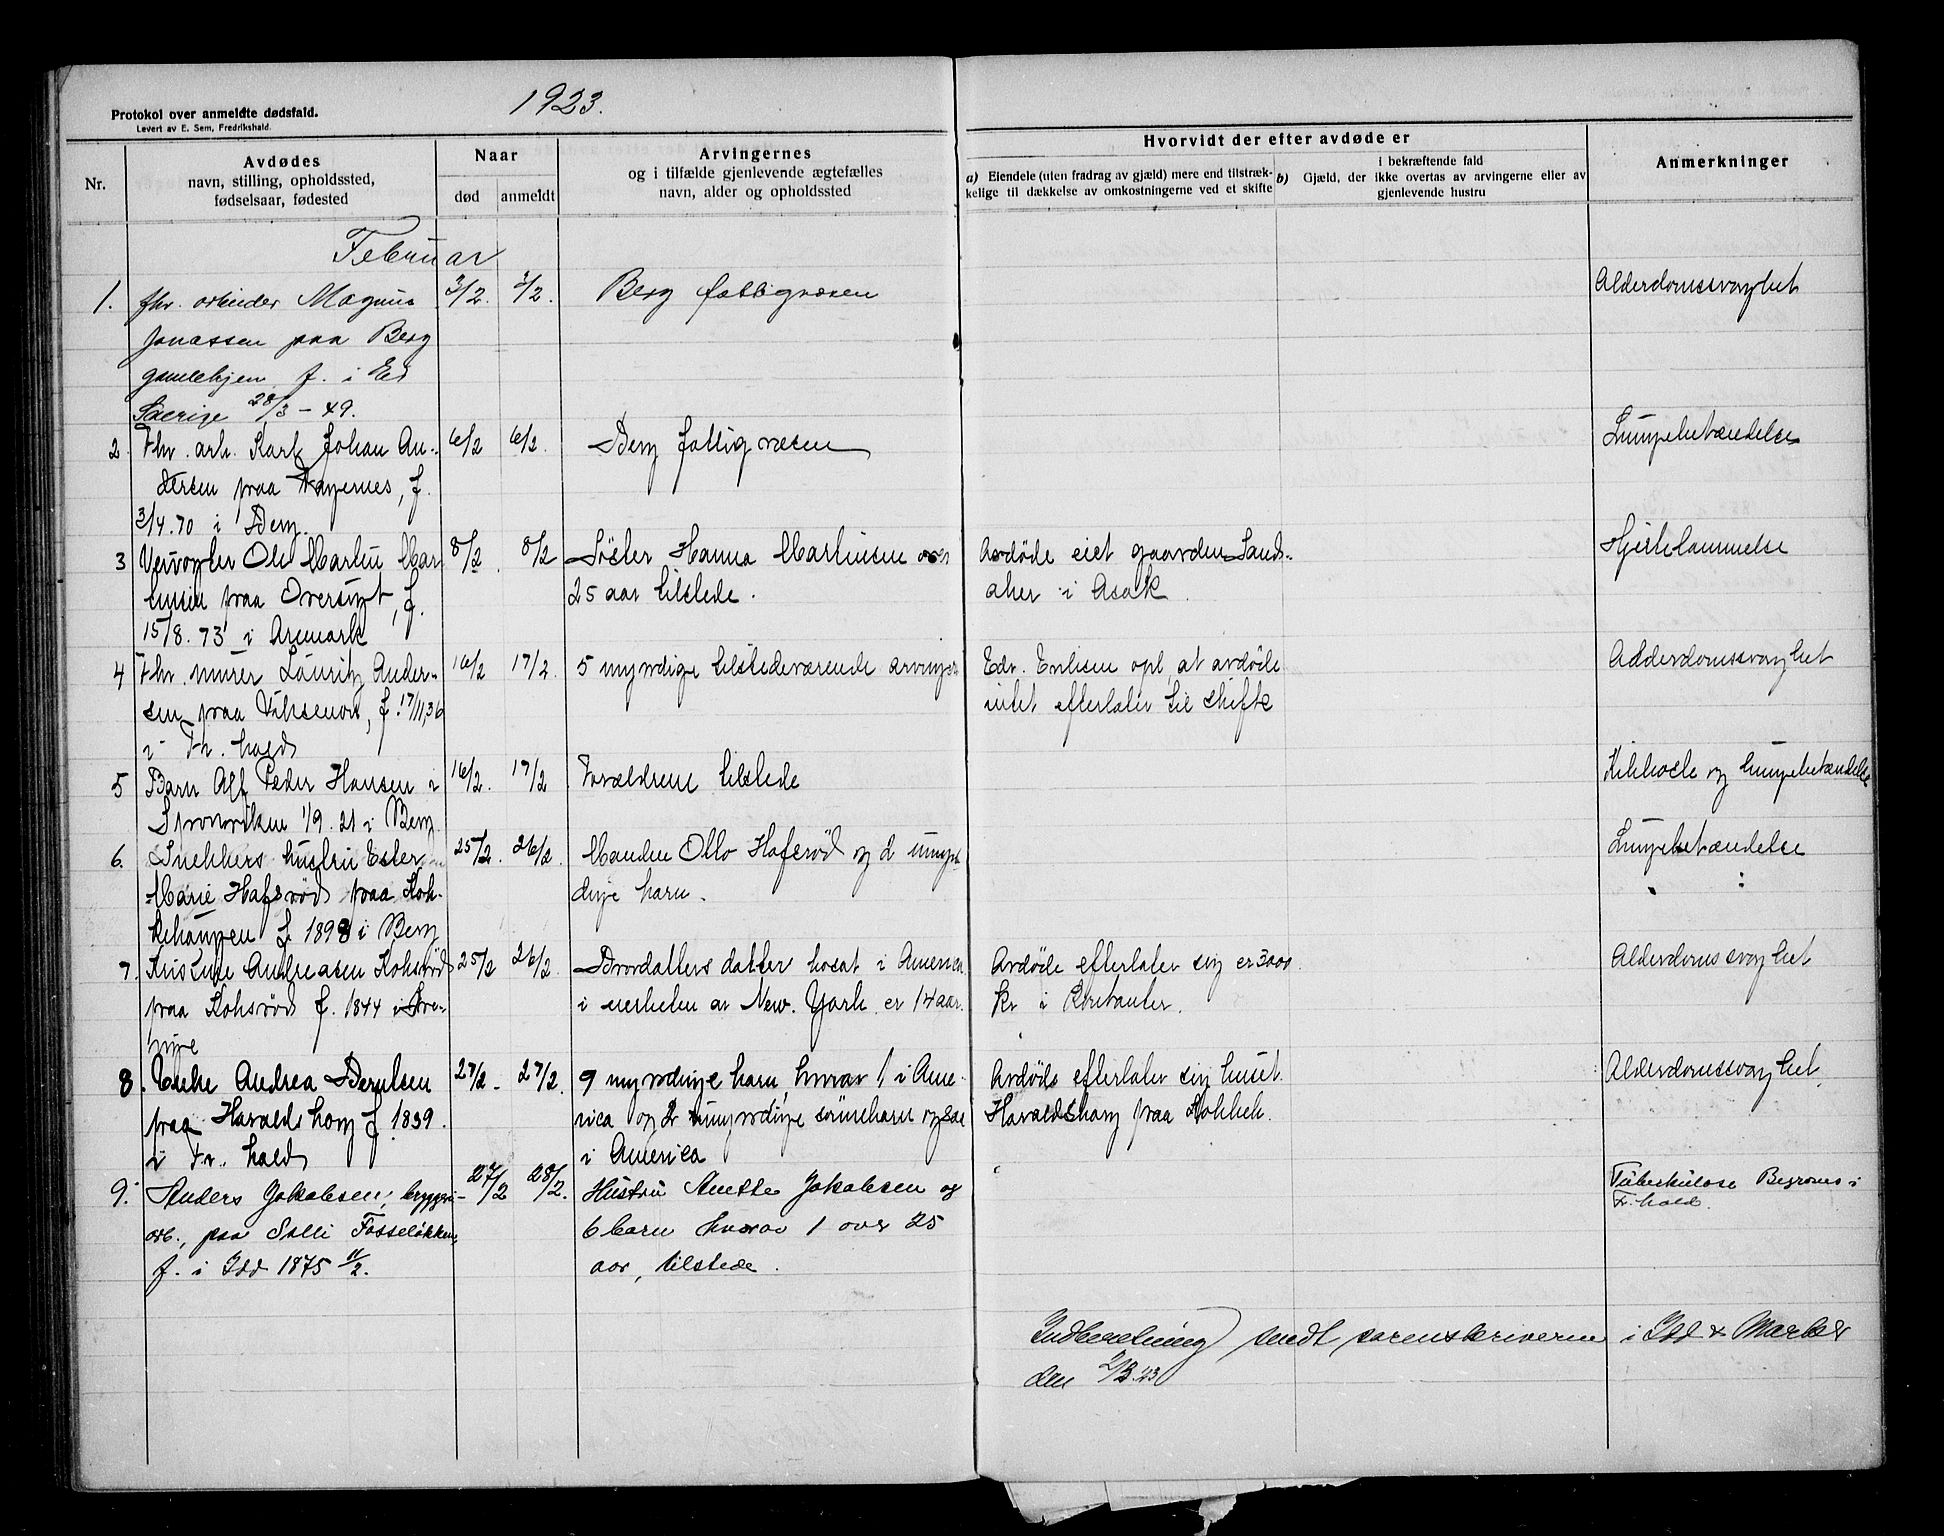 1923.
Protokol over anmeldte dødsfald.
Levert av E. Sem, Fredrikshald.
Nr.
Avdødes
navn, stilling, opholdssted,
fødselsaar, fødested
Naar
død
anmeldt
Arvingernes
og i tilfælde gjenlevende ægtefælles
navn, alder og opholdssted
Hvorvidt der efter avdøde er
a) Eiendele (uten fradrag av gjæld) mere end tilstræk-
kelige til dækkelse av omkostningerne ved et skifte
i bekræftende fald
b) Gjæld, der ikke overtas av arvingerne eller av
gjenlevende hustru
Anmerkninger
Februar
1. fhv. arbeider Magnus 3/2. 3/2. Berg fattigvæsen Alderdomssvaghet
Jonassen paa Berg
gamlehjem f. i Ed
Sverige 28/3 - 49.
2. Fhv. arb. Karl Johan An- 6/2 6/2. Berg fattigvæsen Lungebetændelse
dersen paa, f.
3/4.70 i Berg.
3 Ole Martin Mar 8/2. 8/2 Søster Hanna Martinsen over Avdøde eiet gaarden Sand- Hjertelammelse
tinsen paa, f. 25 aar tilstede. aker i Asak.
15/8.73 i Aremark
4 Fhv. murer Lauritz Ander- 16/2 17/2. 5 myndige tilstedeværende arvinger Edv. Erlisen opl. at avdøde Alderdomssvaghet
sen paa, f. 17/11,36 intet efterlater til skifte
i Fr. hald
5 Barn Alf Peder Hansen i 16/2. 17/2 Forældrene tilstede Kikhoste og lungebetændelse
Sponvika 1/9.21 i Berg.
6. Snekkers hustru Ester 25/2. 26/2. Manden Otto Hafsrød og 2 umyn- Lungebetændelse
Marie Hafsrød paa Kok- dige barn. " :
kehaugen f. 1898 i Berg
7. Kristine Andreasen Koksrød 25/2 26/2. Brordatters datter bosat i Amerika Avdøde efterlater sig er 3000 Alderdomssvaghet
paa Koksrød f. 1844 i Sve- i nerheten av New. York er 14 aar. kr i kontanter.
rige
8. Enke Andrea Berntsen 27/2 - 27/2. 9 myndige barn, hvorav 1 i Ame- Avdøde efterlater sig huset Alderdomssvaghet.
paa Haralds haug f. 1839. rica og 2 umyndige sønnebarn ogsaa Haraldshaug paa Kokkeh.
i Fr. hald i America
9. Anders Jakobsen, bryggeri- 27/2 28/2. Hustru Anette Jakobsen og Tuberkulose Begraves i
arb., paa Solli Fosseløkken, 6 barn hvorav 1 over 25 Fr. hald.
f. i Idd 1875 11/2. aar, tilstede.
Indberetning sendt sorenskriveren i Idd & Marker
den 2/3.23